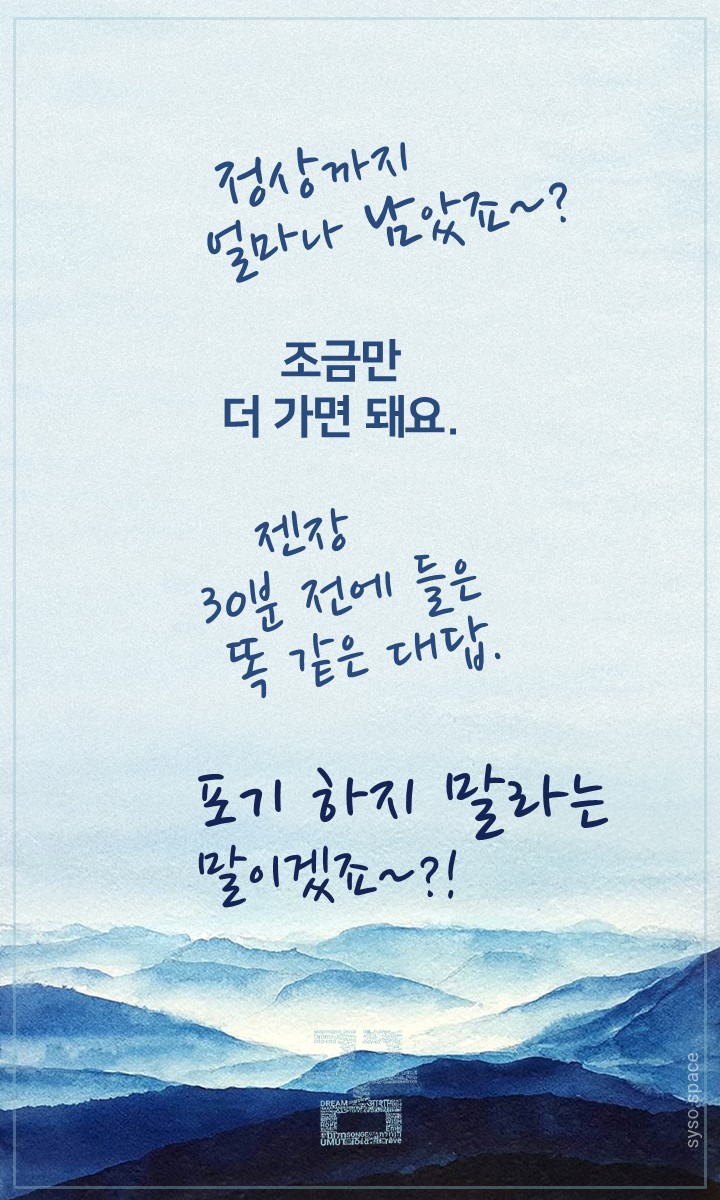 정상까지
얼마나 남았죠~?
조금만
더 가면 돼요.
젠장
30분 전에 들은
똑 같은 대답.
포기 하지 말라는
말이겠죠~?!
꿈
DREAM
UMUT
syso.space